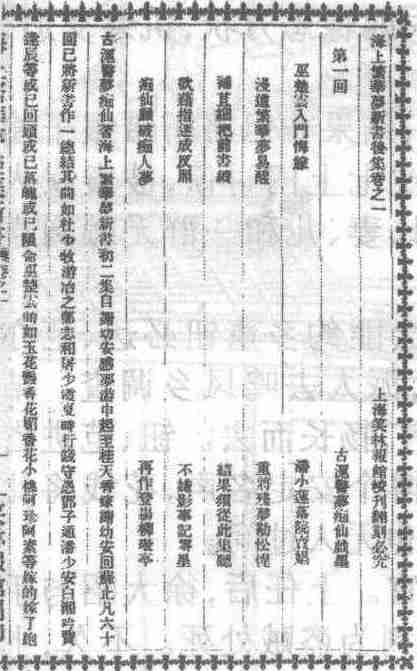 海上繁華夢新書後集卷之一 上海笑林報館校刊翻刻必究
古滬警夢痴仙戲墨
第一回
巫楚雲入門悔嫁 潘小蓮落院賣娼
淺道繁華夢易醒 重將殘夢勒惺惺
補苴細把前書續 結果須從此集聽
欲藉指迷成反照 不嫌影事記零星
痴仙願破痴人夢 再作登場柳敬亭
古滬警夢痴仙著海上繁華夢新書初二集自謝幼安感夢游申起至桂天香嫁謝幼安回蘇止凡六十
回已將新書作一總結其間如杜少牧游冶之鄭志和屠少霞夏時行錢守愚鄧子通潘少安白湘吟賈
逢辰等或已回頭或已落魄或已隕命巫楚雲顏如玉花艷香花媚香花小桃阿珍阿素等嫁的嫁了跑